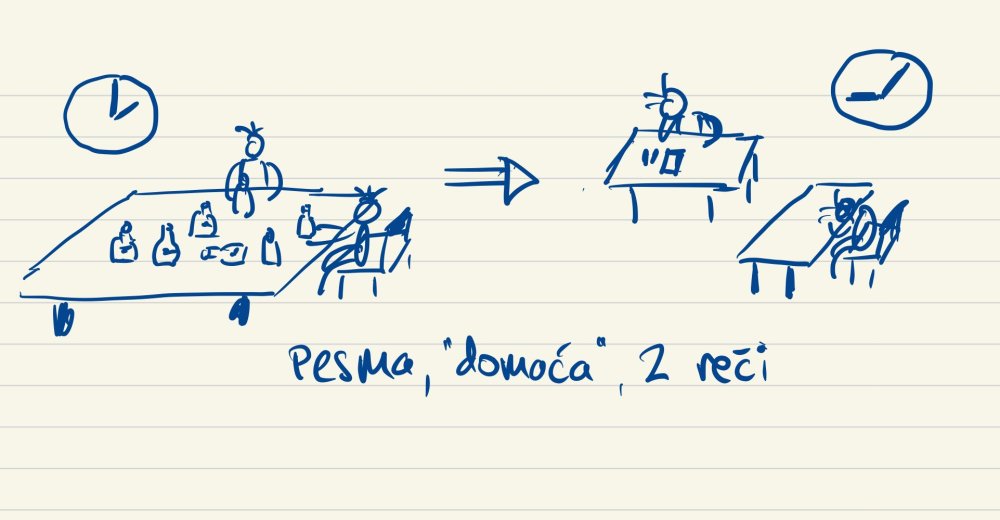 Pesma, "domoća", 2 reči